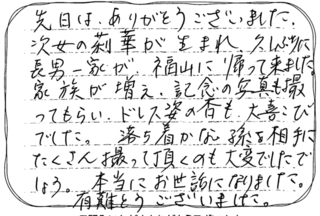 先日は、ありがとうございました。
次女の莉華が生まれ、久しぶりに
長男一家が、福山に帰って来ました。
家族が増え、記念の写真も撮
ってもらい、ドレス姿の杏も、大喜び
でした。落ち着かない孫を相手に
たくさん撮って頂くのも大変でしたで
しょう。本当にお世話になりました。
有難とうございました。